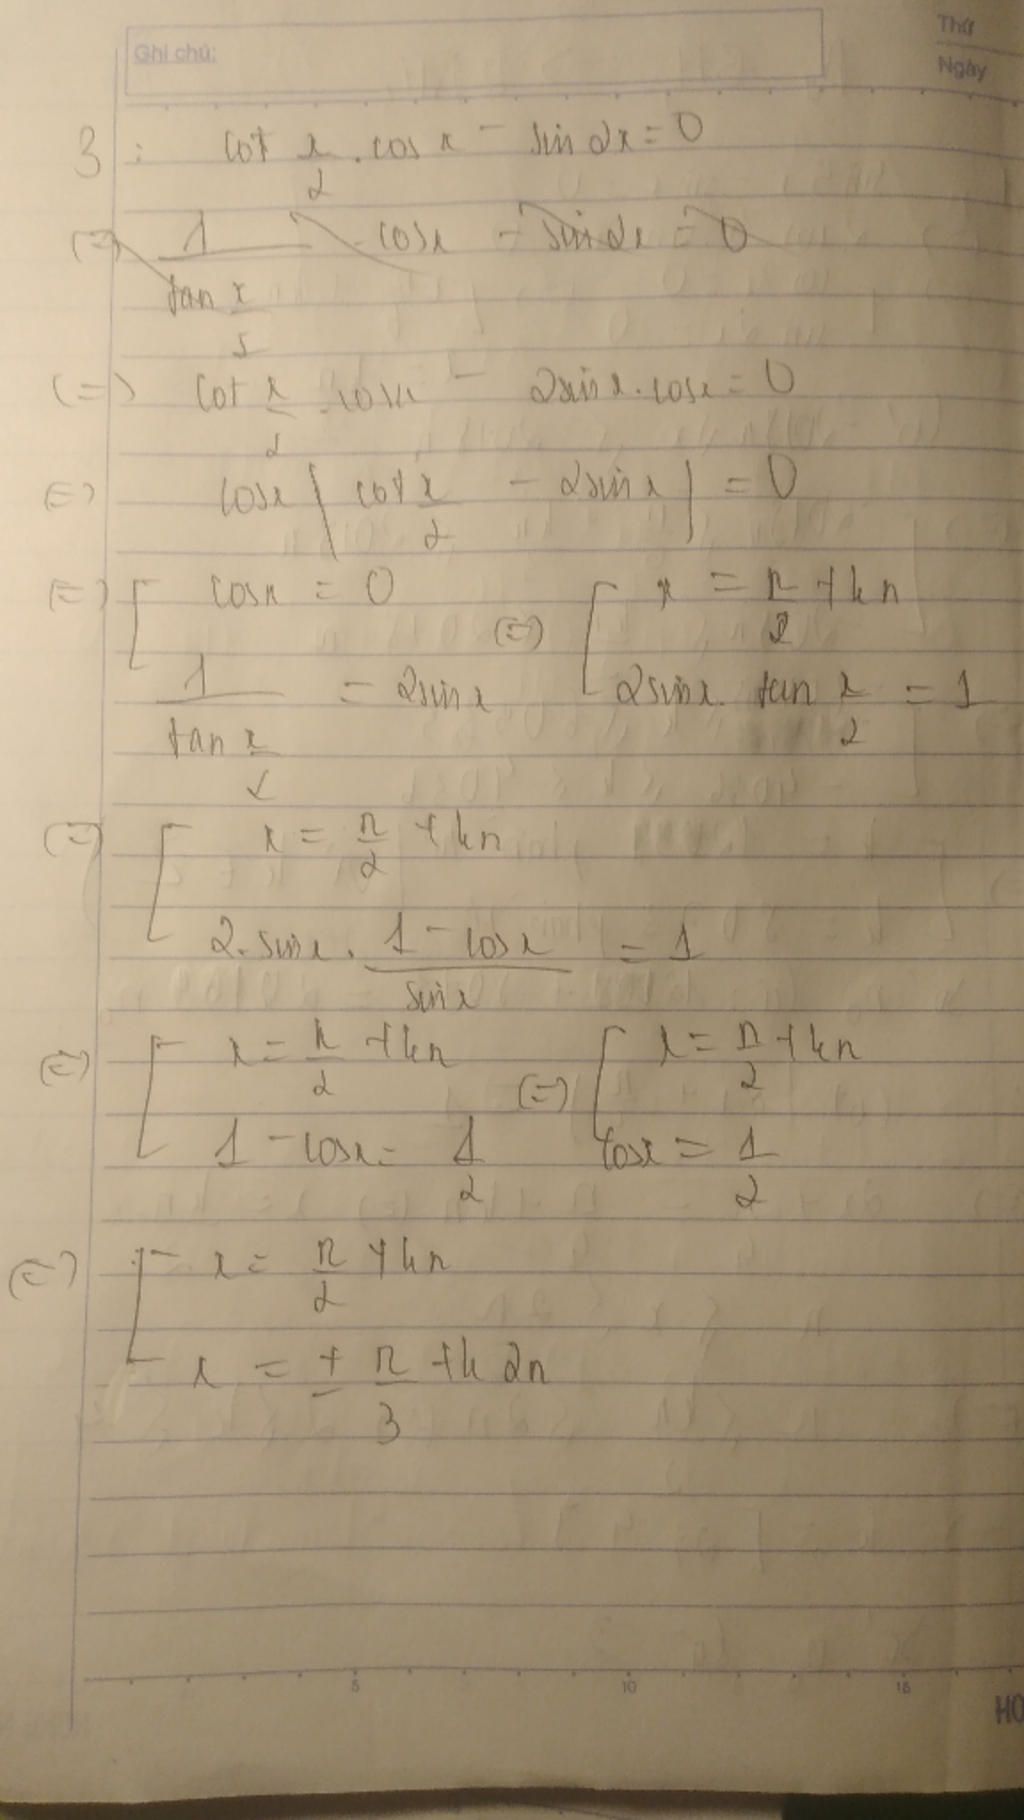 Ghi chú:
Thứ
Ngày
3 : cot x/2 . cos x - sin 2x = 0
(=) 1/(tan x/2) cosx - sin 2x = 0
(=) cot x/2 . cosx - 2sinx . cosx = 0
(=) cosx ( cot x/2 - 2sinx ) = 0
(=) [ cosx = 0 (=) [ x = π/2 + kπ
1/(tan x/2) = 2sinx 2sinx . tan x/2 = 1
(=) [ x = π/2 + kπ
2. sinx . (1 - cosx)/sinx = 1
(=) [ x = π/2 + kπ (=) [ x = π/2 + kπ
1 - cosx = 1/2 cosx = 1/2
(=) [ x = π/2 + kπ
x = ± π/3 + k2π
5 10 15
HO